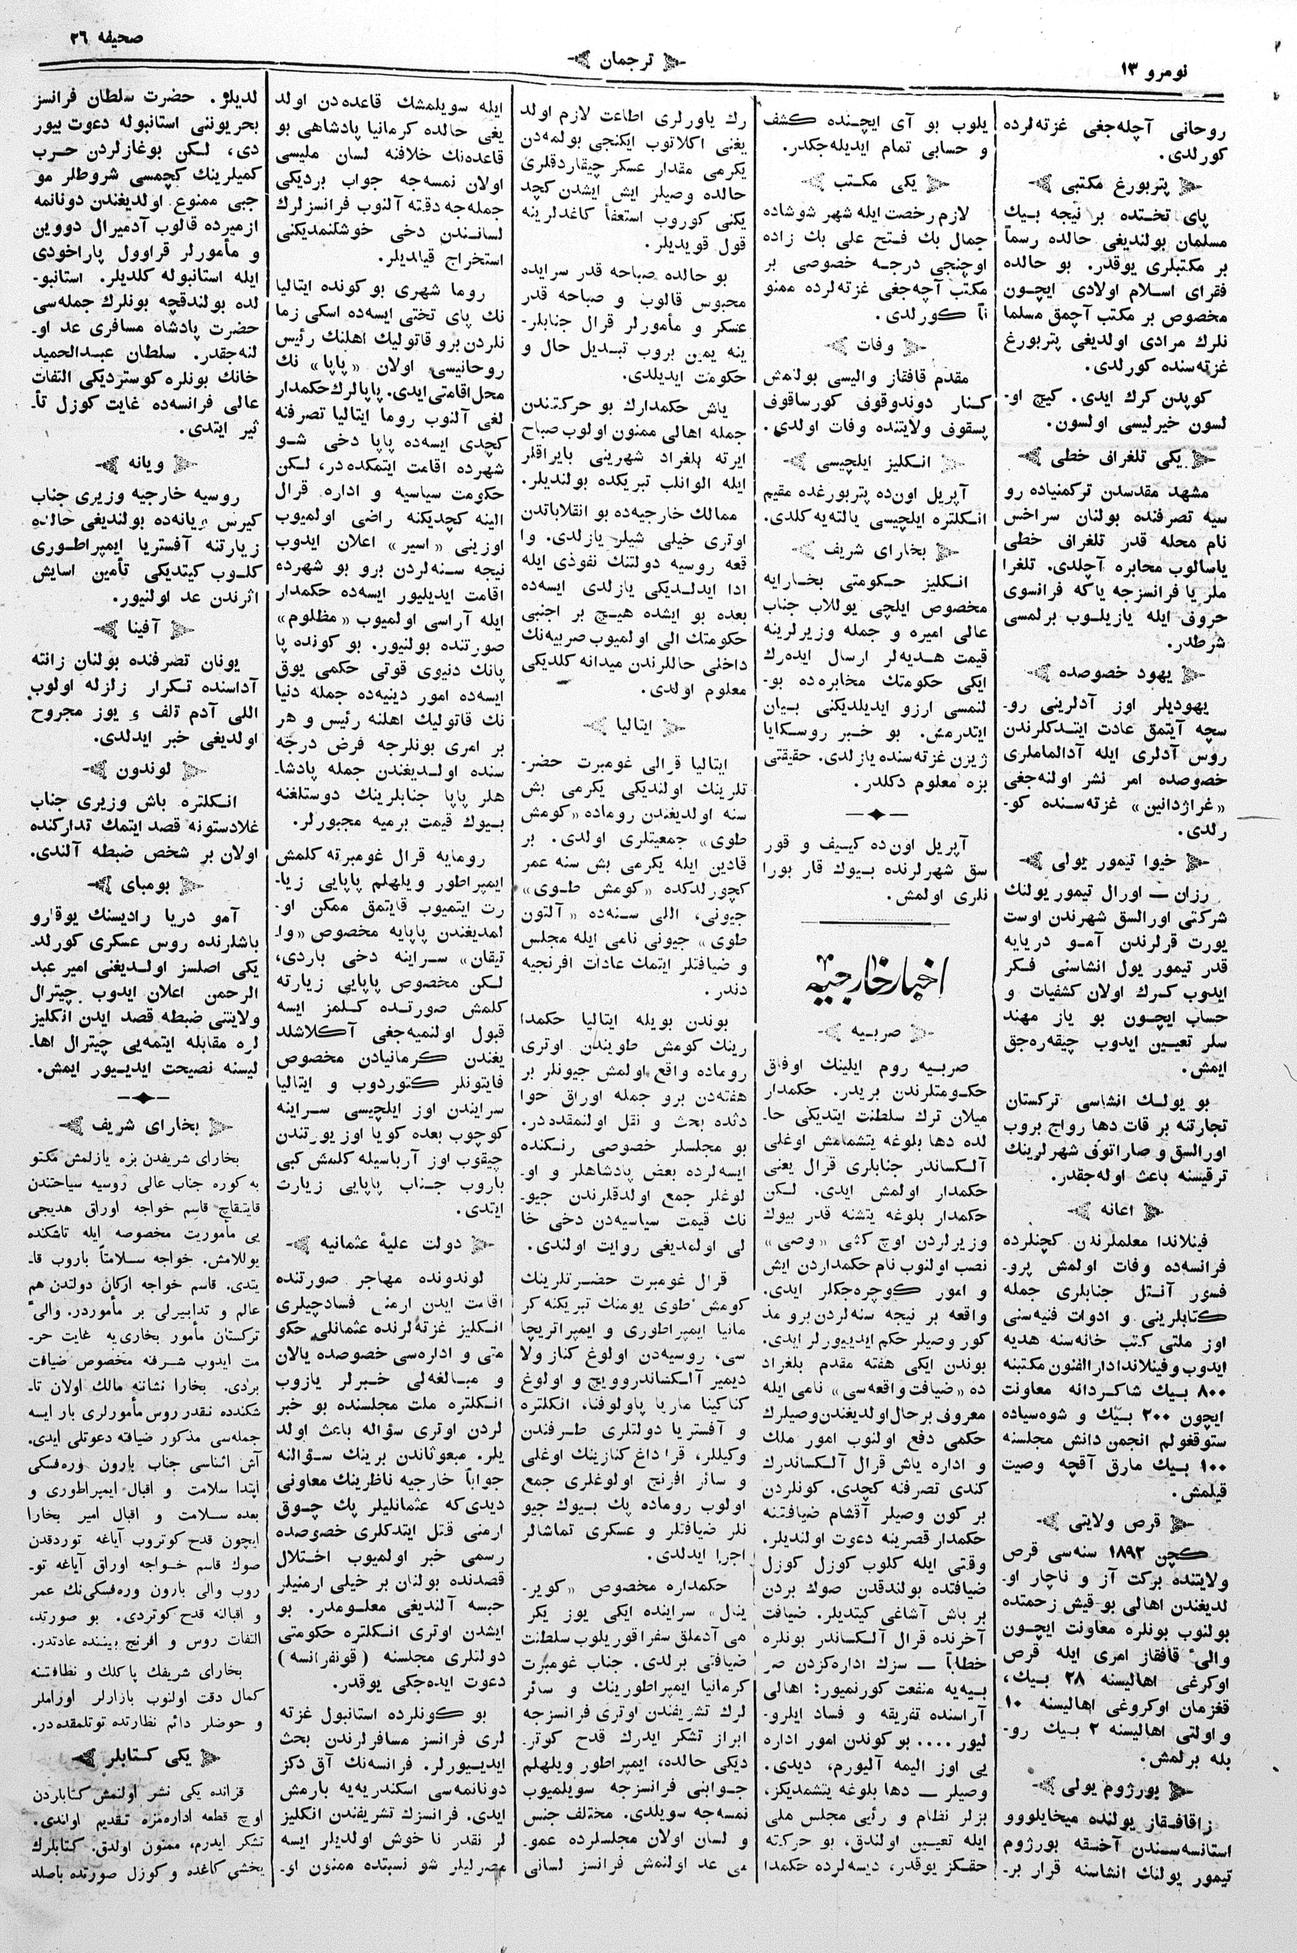 نومرو ١٣
ترجمان
صحيفه ٢٦
روحانی آچله‌جغی غزته‌لرده
كورلدی.
پتربورغ مكتبی
پای تختده بر نیچه بیك
مسلمان بولندیغی حالده رسماً
بر مكتبلری یوقدر. بو حالده
فقرای اسلام اولادی ایچون
مخصوص بر مكتب آچمق مسلما
نلرك مرادی اولدیغی پتربورغ
غزته‌سنده كورلدی.
كوپدن كرك ایدی. كیچ او-
لسون خیرلیسی اولسون.
یكی تلغراف خطی
مشهد مقدسدن تركمنیاده رو
سیه تصرفنده بولنان سراخس
نام محله قدر تلغراف خطی
یاسالوب مخابره آچلدی. تلغرا
ملر یا فرانسزجه یاكه فرانسوی
حروف ایله یازیلوب برلمسی
شرطدر.
یهود خصوصده
یهودیلر اوز آدلرینی رو-
سچه آیتمق عادت ایتدكلرندن
روس آدلری ایله آدالماملری
خصوصده امر نشر اولنه‌جغی
«غراژدانین» غزته‌سنده كو-
رلدی.
خیوا تیمور یولی
رزان — اورال تیمور یولنك
شركتی اورالسق شهرندن اوست
یورت قرلرندن آمو دریایه
قدر تیمور یول انشاسنی فكر
ایدوب كرك اولان كشفیات و
حساب ایچون بو یاز مهند
سلر تعیین ایدوب چیقه‌ره‌جق
ایمش.
بو یولك انشاسی تركستان
تجارتنه بر قات دها رواج بروب
اورالسق و صاراتوف شهرلرینك
ترقیسنه باعث اوله‌جقدر.
اعانه
فینلاندا معلملرندن كچنلرده
فرانسه‌ده وفات اولمش پرو-
فسور آنتل جنابلری جمله
كتابلرینی و ادوات فنیه‌سنی
اوز ملتی كتب خانه‌سنه هدیه
ایدوب وفینلاندا دار الفنون مكتبنه
٨٠٠ بیك شاكردانه معاونت
ایچون ٢٠٠ بیك و شوه‌سیاده
ستوقغولم انجمن دانش مجلسنه
١٠٠ بیك مارق آقچه وصیت
قیلمش.
قرص ولایتی
كچن ١٨٩٢ سنه‌سی قرص
ولایتنده بركت آز و ناچار او-
لدیغندن اهالی بو قیش زحمتده
بولنوب بونلره معاونت ایچون
والیٔ قافقاز امری ایله قرص
اوكرغی اهالیسنه ٢٨ بیك،
قغزمان اوكروغی اهالیسنه ١٠
و اولتی اهالیسنه ٢ بیك رو-
بله برلمش.
بورژوم یولی
زاقافقاز یولنده میخایلووو
استانسه‌سندن آخسقه بورژوم
تیمور یولنك انشاسنه قرار بر-
یلوب بو آی ایچنده كشف
و حسابی تمام ایدیله‌جكدر.
یكی مكتب
لازم رخصت ایله شهر شوشاده
جمال بك فتح علی بك زاده
اوچنجی درجه خصوصی بر
مكتب آچه‌جغی غزته‌لرده ممنو
ناً كورلدی.
وفات
مقدم قافقاز والیسی بولنمش
كنار دوندوقوف كورساقوف
پسقوف ولایتنده وفات اولدی.
انكلیز ایلچیسی
آپریل اون‌ده پتربورغده مقیم
انكلتره ایلچیسی یالته‌یه كلدی.
بخارای شریف
انكلیز حكومتی بخارایه
مخصوص ایلچی یوللاب جناب
عالی امیره و جمله وزیرلرینه
قیمت هدیه‌لر ارسال ایده‌رك
ایكی حكومتك مخابره‌ده بو-
لنمسی ارزو ایدیلدیكنی بیان
ایتدرمش. بو خبر روسكایا
ژیزن غزته‌سنده یازلدی. حقیقتی
بزه معلوم دكلدر.
آپریل اون‌ده كییف و قور
سق شهرلرنده بیوك قار بورا
نلری اولمش.
اخبار خارجیه
صربیه
صربیه روم ایلینك اوفاق
حكومتلرندن بریدر. حكمدار
میلان ترك سلطنت ایتدیكی حا-
لده دها بلوغه یتشمامش اوغلی
آلكساندر جنابلری قرال یعنی
حكمدار اولمش ایدی. لكن
حكمدار بلوغه یتشنه قدر بیوك
وزیرلردن اوچ كشی «وصی»
نصب اولنوب نام حكمداردن ایش
و امور كوچره‌جكلر ایدی.
واقعه بر نیچه سنه‌لردن برو مذ
كور وصیلر حكم ایدییورلر ایدی.
بوندن ایكی هفته مقدم بلغراد
ده «ضیافت واقعه‌سی» نامی ایله
معروف برحال اولدیغندن وصیلرك
حكمی دفع اولنوب امور ملك
و اداره یاش قرال آلكساندرك
كندی تصرفنه كچدی. كونلردن
بر كون وصیلر آقشام ضیافتنه
حكمدار قصرینه دعوت اولندیلر.
وقتی ایله كلوب كوزل كوزل
ضیافتده بولندقدن صوك بردن
بر باش آشاغی كیتدیلر. ضیافت
آخرنده قرال آلكساندر بونلره
خطاباً — سزك اداره‌كزدن صر
بیه‌یه منفعت كورنمیور؛ اهالی
آراسنده تفریقه و فساد ایلرو-
لیور.... بو كوندن امور اداره
یی اوز الیمه آلیورم، دیدی.
وصیلر — دها بلوغه یتشمدیكز،
بزلر نظام و رأیی مجلس ملی
ایله تعیین اولندق، بو حركته
حقكز یوقدر، دیسه‌لرده حكمدا
رك یاورلری اطاعت لازم اولد
یغنی اكلاتوب ایكنجی بولمه‌دن
یكرمی مقدار عسكر چیقاردقلری
حالده وصیلر ایش ایشدن كچد
یكنی كوروب استعفاً كاغدلرینه
قول قویدیلر.
بو حالده صباحه قدر سرایده
محبوس قالوب و صباحه قدر
عسكر و مأمورلر قرال جنابلر-
ینه یمین بروب تبدیل حال و
حكومت ایدیلدی.
یاش حكمدارك بو حركتندن
جمله اهالی ممنون اولوب صباح
ایرته بلغراد شهرینی بایراقلر
ایله الوانلب تبریكده بولندیلر.
ممالك خارجیه‌ده بو انقلاباتدن
اوتری خیلی شیلر یازلدی. وا
قعه روسیه دولتنك نفوذی ایله
ادا ایدلدیكی یازلدی ایسه‌ده
بعده بو ایشده هیچ بر اجنبی
حكومتك الی اولمیوب صربیه‌نك
داخلی حاللرندن میدانه كلدیكی
معلوم اولدی.
ایتالیا
ایتالیا قرالی غومبرت حضر-
تلرینك اولندیكی یكرمی بش
سنه اولدیغندن روماده «كومش
طوی» جمعیتلری اولدی. بر
قادین ایله یكرمی بش سنه عمر
كچورلدكده «كومش طوی»
جیونی، اللی سنه‌ده «آلتون
طوی» جیونی نامی ایله مجلس
و ضیافتلر ایتمك عادات افرنجیه
دندر.
بوندن بویله ایتالیا حكمدا
رینك كومش طویندن اوتری
روماده واقع اولمش جیونلر بر
هفته‌دن برو جمله اوراق حوا
دثده بحث و نقل اولنمقده‌در.
بو مجلسلر خصوصی رنكنده
ایسه‌لرده بعض پادشاهلر و او-
لوغلر جمع اولدقلرندن جیو-
نك قیمت سیاسیه‌دن دخی خا
لی اولمدیغی روایت اولندی.
قرال غومبرت حضرتلرینك
كومش طوی یومنك تبریكنه كر
مانیا ایمپراطوری و ایمپراتریچا
سی، روسیه‌دن اولوغ كناز ولا
دیمیر آلكساندروویچ و اولوغ
كناكینا ماریا پاولوفنا، انكلتره
و آفستریا دولتلری طرفندن
وكیللر، قرا داغ كنازینك اوغلی
و سائر افرنج اولوغلری جمع
اولوب روماده پك بیوك جیو
نلر ضیافتلر و عسكری تماشالر
اجرا ایدلدی.
حكمداره مخصوص «كویر-
ینال» سراینده ایكی یوز یكر
می آدملق سفرا قوریلوب سلطنت
ضیافتی برلدی. جناب غومبرت
كرمانیا ایمپراطورینك و سائر
لرك تشریفندن اوتری فرانسزجه
ابراز تشكر ایدرك قدح كوتر-
دیكی حالده، ایمپراطور ویلهلم
جوابنی فرانسزجه سویلمیوب
نمسه‌جه سویلدی. مختلف جنس
و لسان اولان مجلسلرده عمو-
می عد اولنمش فرانسز لسانی
ایله سویلمشك قاعده‌دن اولد
یغی حالده كرمانیا پادشاهی بو
قاعده‌نك خلافنه لسان ملیسی
اولان نمسه‌جه جواب بردیكی
جمله‌جه دقته آلنوب فرانسزلرك
لساندن دخی خوشكنمدیكنی
استخراج قیلدیلر.
روما شهری بو كونده ایتالیا
نك پای تختی ایسه‌ده اسكی زما
نلردن برو قاتولیك اهلنك رئیس
روحانیسی اولان «پاپا» نك
محل اقامتی ایدی. پاپالرك حكمدار
لغی آلنوب روما ایتالیا تصرفنه
كچدی ایسه‌ده پاپا دخی شو
شهرده اقامت ایتمكده‌در، لكن
حكومت سیاسیه و اداره قرال
الینه كچدیكنه راضی اولمیوب
اوزینی «اسیر» اعلان ایدوب
نیجه سنه‌لردن برو بو شهرده
اقامت ایدیلیور ایسه‌ده حكمدار
ایله آراسی اولمیوب «مظلوم»
صورتنده بولنیور. بو كونده پا
پانك دنیوی قوتی حكمی یوق
ایسه‌ده امور دینیه‌ده جمله دنیا
نك قاتولیك اهلنه رئیس و هر
بر امری بونلرجه فرض درجه
سنده اولدیغندن جمله پادشا-
هلر پاپا جنابلرینك دوستلغنه
بیوك قیمت برمیه مجبورلر.
رومایه قرال غومبرته كلمش
ایمپراطور ویلهلم پاپایی زیا-
رت ایتمیوب قایتمق ممكن او-
لمدیغندن پاپایه مخصوص «وا-
تیقان» سراینه دخی باردی،
لكن مخصوص پاپایی زیارته
كلمش صورتده كلمز ایسه
قبول اولنمیه‌جغی آكلاشلد
یغندن كرمانیادن مخصوص
فایتونلر كتوردوب و ایتالیا
سرایندن اوز ایلچیسی سراینه
كوچوب بعده كویا اوز یورتندن
چیقوب اوز آرباسیله كلمش كبی
باروب جناب پاپایی زیارت
ایتدی.
دولت علیهٔ عثمانیه
لوندونده مهاجر صورتنده
اقامت ایدن ارمنی فسادچیلری
انكلیز غزته‌لرنده عثمانلی حكو
متی و اداره‌سی خصوصده یالان
و مبالغه‌لی خبرلر یازوب
انكلتره ملت مجلسنده بو خبر
لردن اوتری سؤاله باعث اولد
یلر. مبعوثاندن برینك سؤالنه
جواباً خارجیه ناظرینك معاونی
دیدی‌كه عثمانلیلر پك چوق
ارمنی قتل ایتدكلری خصوصده
رسمی خبر اولمیوب اختلال
قصدنده بولنان بر خیلی ارمنیلر
حبسه آلندیغی معلومدر. بو
ایشدن اوتری انكلتره حكومتی
دولتلری مجلسنه (قونفرانسه)
دعوت ایده‌جكی یوقدر.
بو كونلرده استانبول غزته
لری فرانسز مسافرلرندن بحث
ایدییورلر. فرانسه‌نك آق دكز
دونانمه‌سی اسكندریه‌یه بارمش
ایدی. فرانسزك تشریفندن انكلیز
لر نقدر نا خوش اولدیلر ایسه
مصرلیلر شو نسبتده ممنون او-
لدیلر. حضرت سلطان فرانسز
بحریوننی استانبوله دعوت بیور
دی، لكن بوغازلردن حرب
كمیلرینك كچمسی شروطلر مو
جبی ممنوع اولدیغندن دونانمه
ازمیرده قالوب آدمیرال دووین
و مأمورلر قراوول پاراخودی
ایله استانبوله كلدیلر. استانبو-
لده بولندقچه بونلرك جمله‌سی
حضرت پادشاه مسافری عد او-
لنه‌جقدر. سلطان عبدالحمید
خانك بونلره كوستردیكی التفات
عالی فرانسه‌ده غایت كوزل تأ-
ثیر ایتدی.
ویانه
روسیه خارجیه وزیری جناب
كیرس ویانه‌ده بولندیغی حالده
زیارتنه آفستریا ایمپراطوری
كلوب كیتدیكی تأمین اسایش
اثرندن عد اولنیور.
آفینا
یونان تصرفنده بولنان زانته
آداسنده تكرار زلزله اولوب
اللی آدم تلف و یوز مجروح
اولدیغی خبر ایدلدی.
لوندون
انكلتره باش وزیری جناب
غلادستونه قصد ایتمك تداركنده
اولان بر شخص ضبطه آلندی.
بومبای
آمو دریا رادیسنك یوقارو
باشلرنده روس عسكری كورلد-
یكی اصلسز اولدیغنی امیر عبد
الرحمن اعلان ایدوب چیترال
ولایتنی ضبطه قصد ایدن انكلیز
لره مقابله ایتمه‌یی چیترال اها-
لیسنه نصیحت ایدییور ایمش.
بخارای شریف
بخارای شریفدن بزه یازلمش مكتو
به كوره جناب عالی روسیه سیاحتندن
قایتقاچ قاسم خواجه اوراق هدیجی
یی مأموریت مخصوصه ایله تاشكنده
یوللامش. خواجه سلامتاً باروب قا-
یتدی. قاسم خواجه اركان دولتدن هم
عالم و تدابیرلی بر مأموردر. والیٔ
تركستان مأمور بخاری‌یه غایت حر-
مت ایدوب شرفنه مخصوص ضیافت
بردی. بخارا نشاننه مالك اولان تا-
شكندده نقدر روس مأمورلری بار ایسه
جمله‌سی مذكور ضیافته دعوتلی ایدی.
آش اثناسی جناب بارون وره‌فسكی
ابتدا سلامت و اقبال ایمپراطوری و
بعده سلامت و اقبال امیر بخارا
ایچون قدح كوتروب آیاغه توردقدن
صوك قاسم خواجه اوراق آیاغه تو-
روب والی بارون وره‌فسكی‌نك عمر
و اقبالنه قدح كوتردی. بو صورتد،
التفات روس و افرنج بیننده عادتدر.
بخارای شریفك پاكلك و نظافتنه
كمال دقت اولنوب بازارلر اوراملر
و حوضلر دائم نظارتده توتلمقده‌در.
یكی كتابلر
قزانده یكی نشر اولنمش كتابلردن
اوچ قطعه اداره‌مزه تقدیم اولندی.
تشكر ایدرم، ممنون اولدق. كتابلرك
یخشی كاغده و كوزل صورتده باصلد